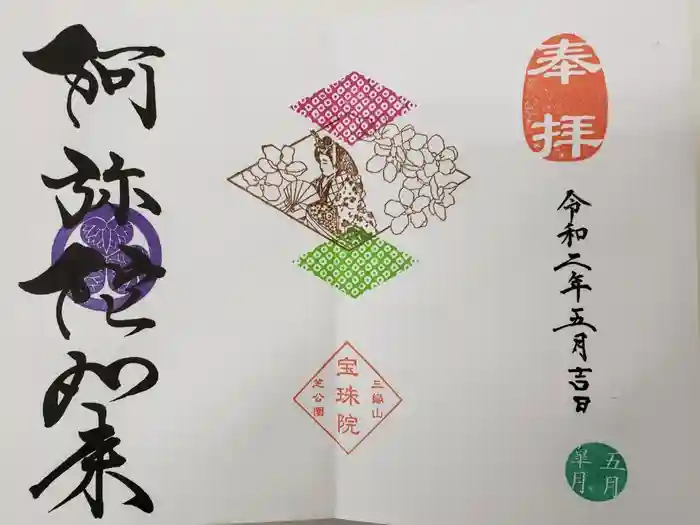 奉拝
令和二年五月吉日
五月
皐月
三縁山
宝珠院
芝公園
阿弥陀如来